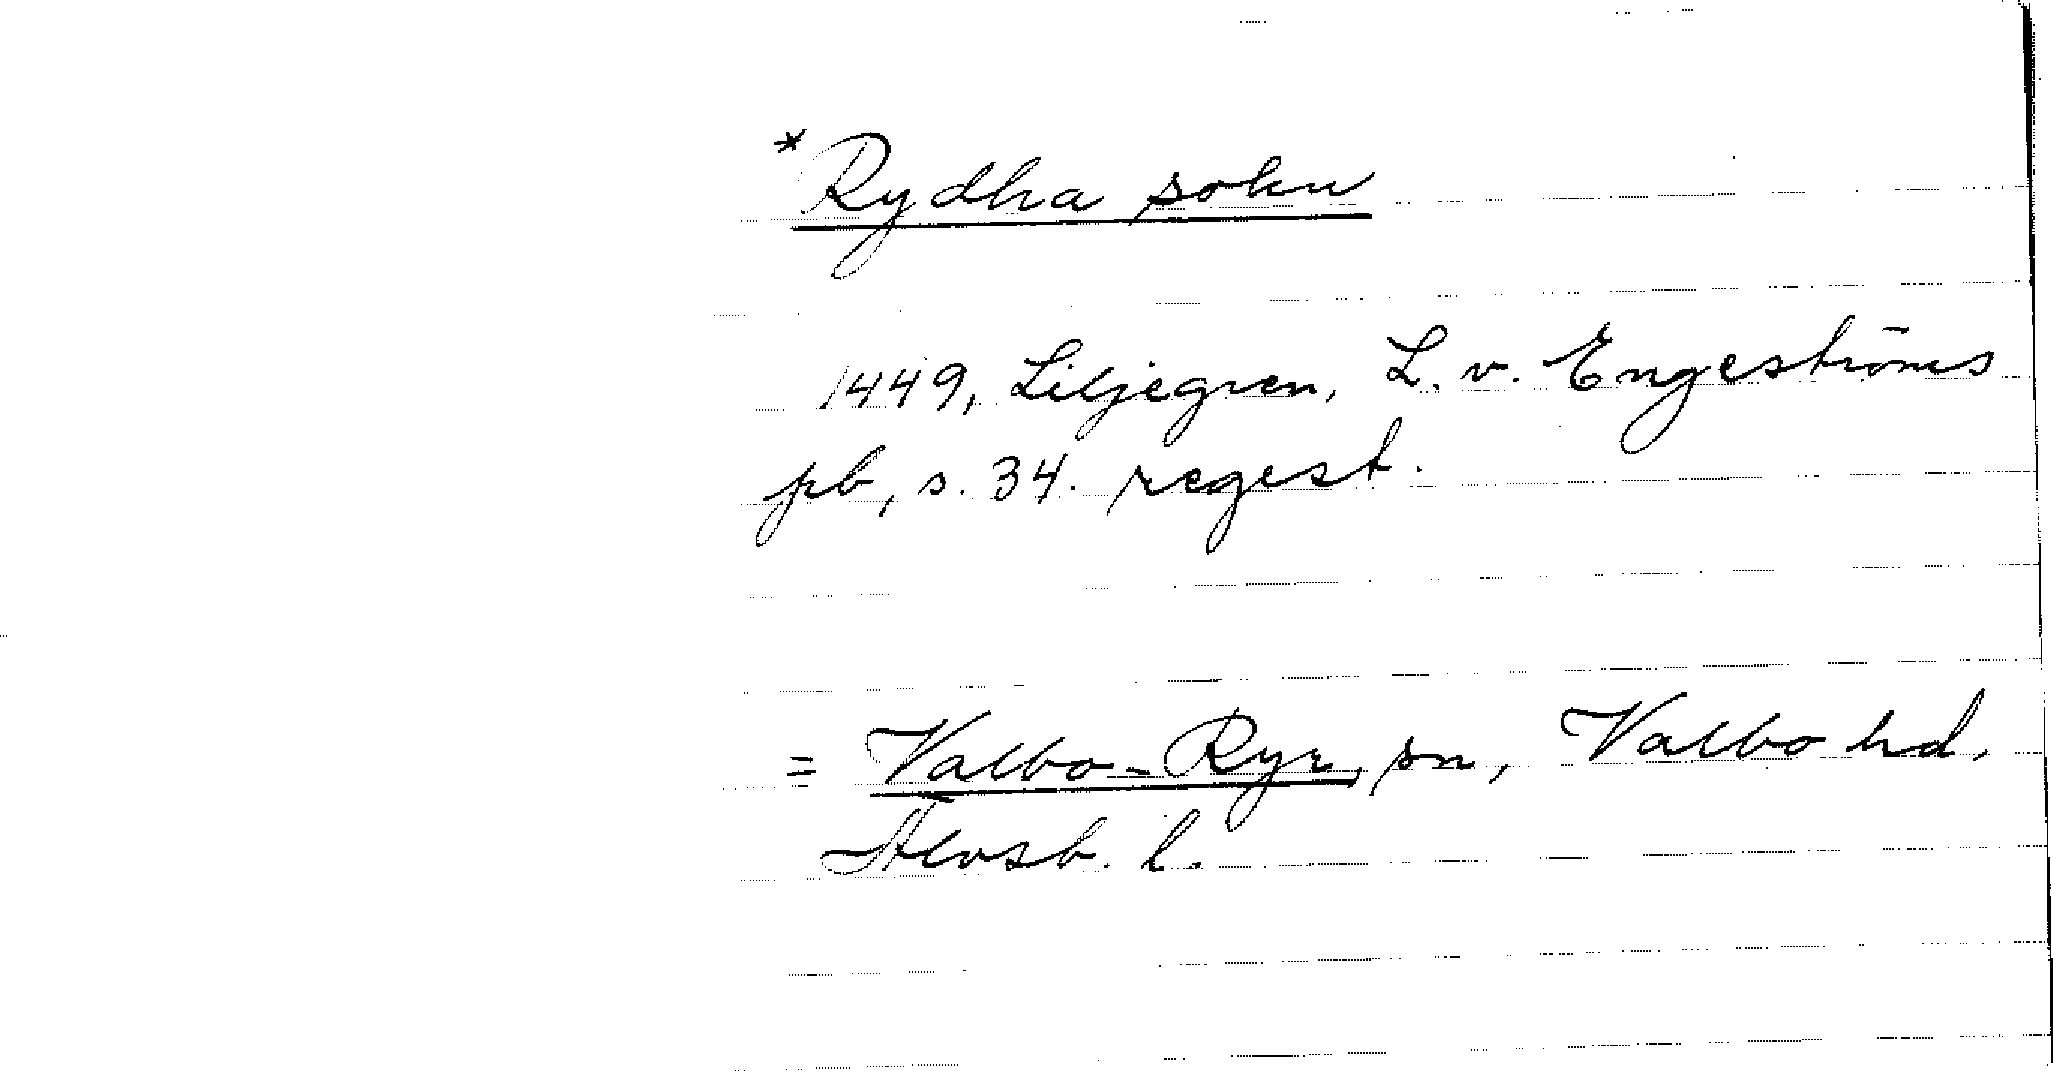 * Rydha sokn
1449, Liljegren, L. v. Engeströms
pb, s. 34. regest.
= Valbo-Ryr, sn, Valbo hd,
Älvsb. l.